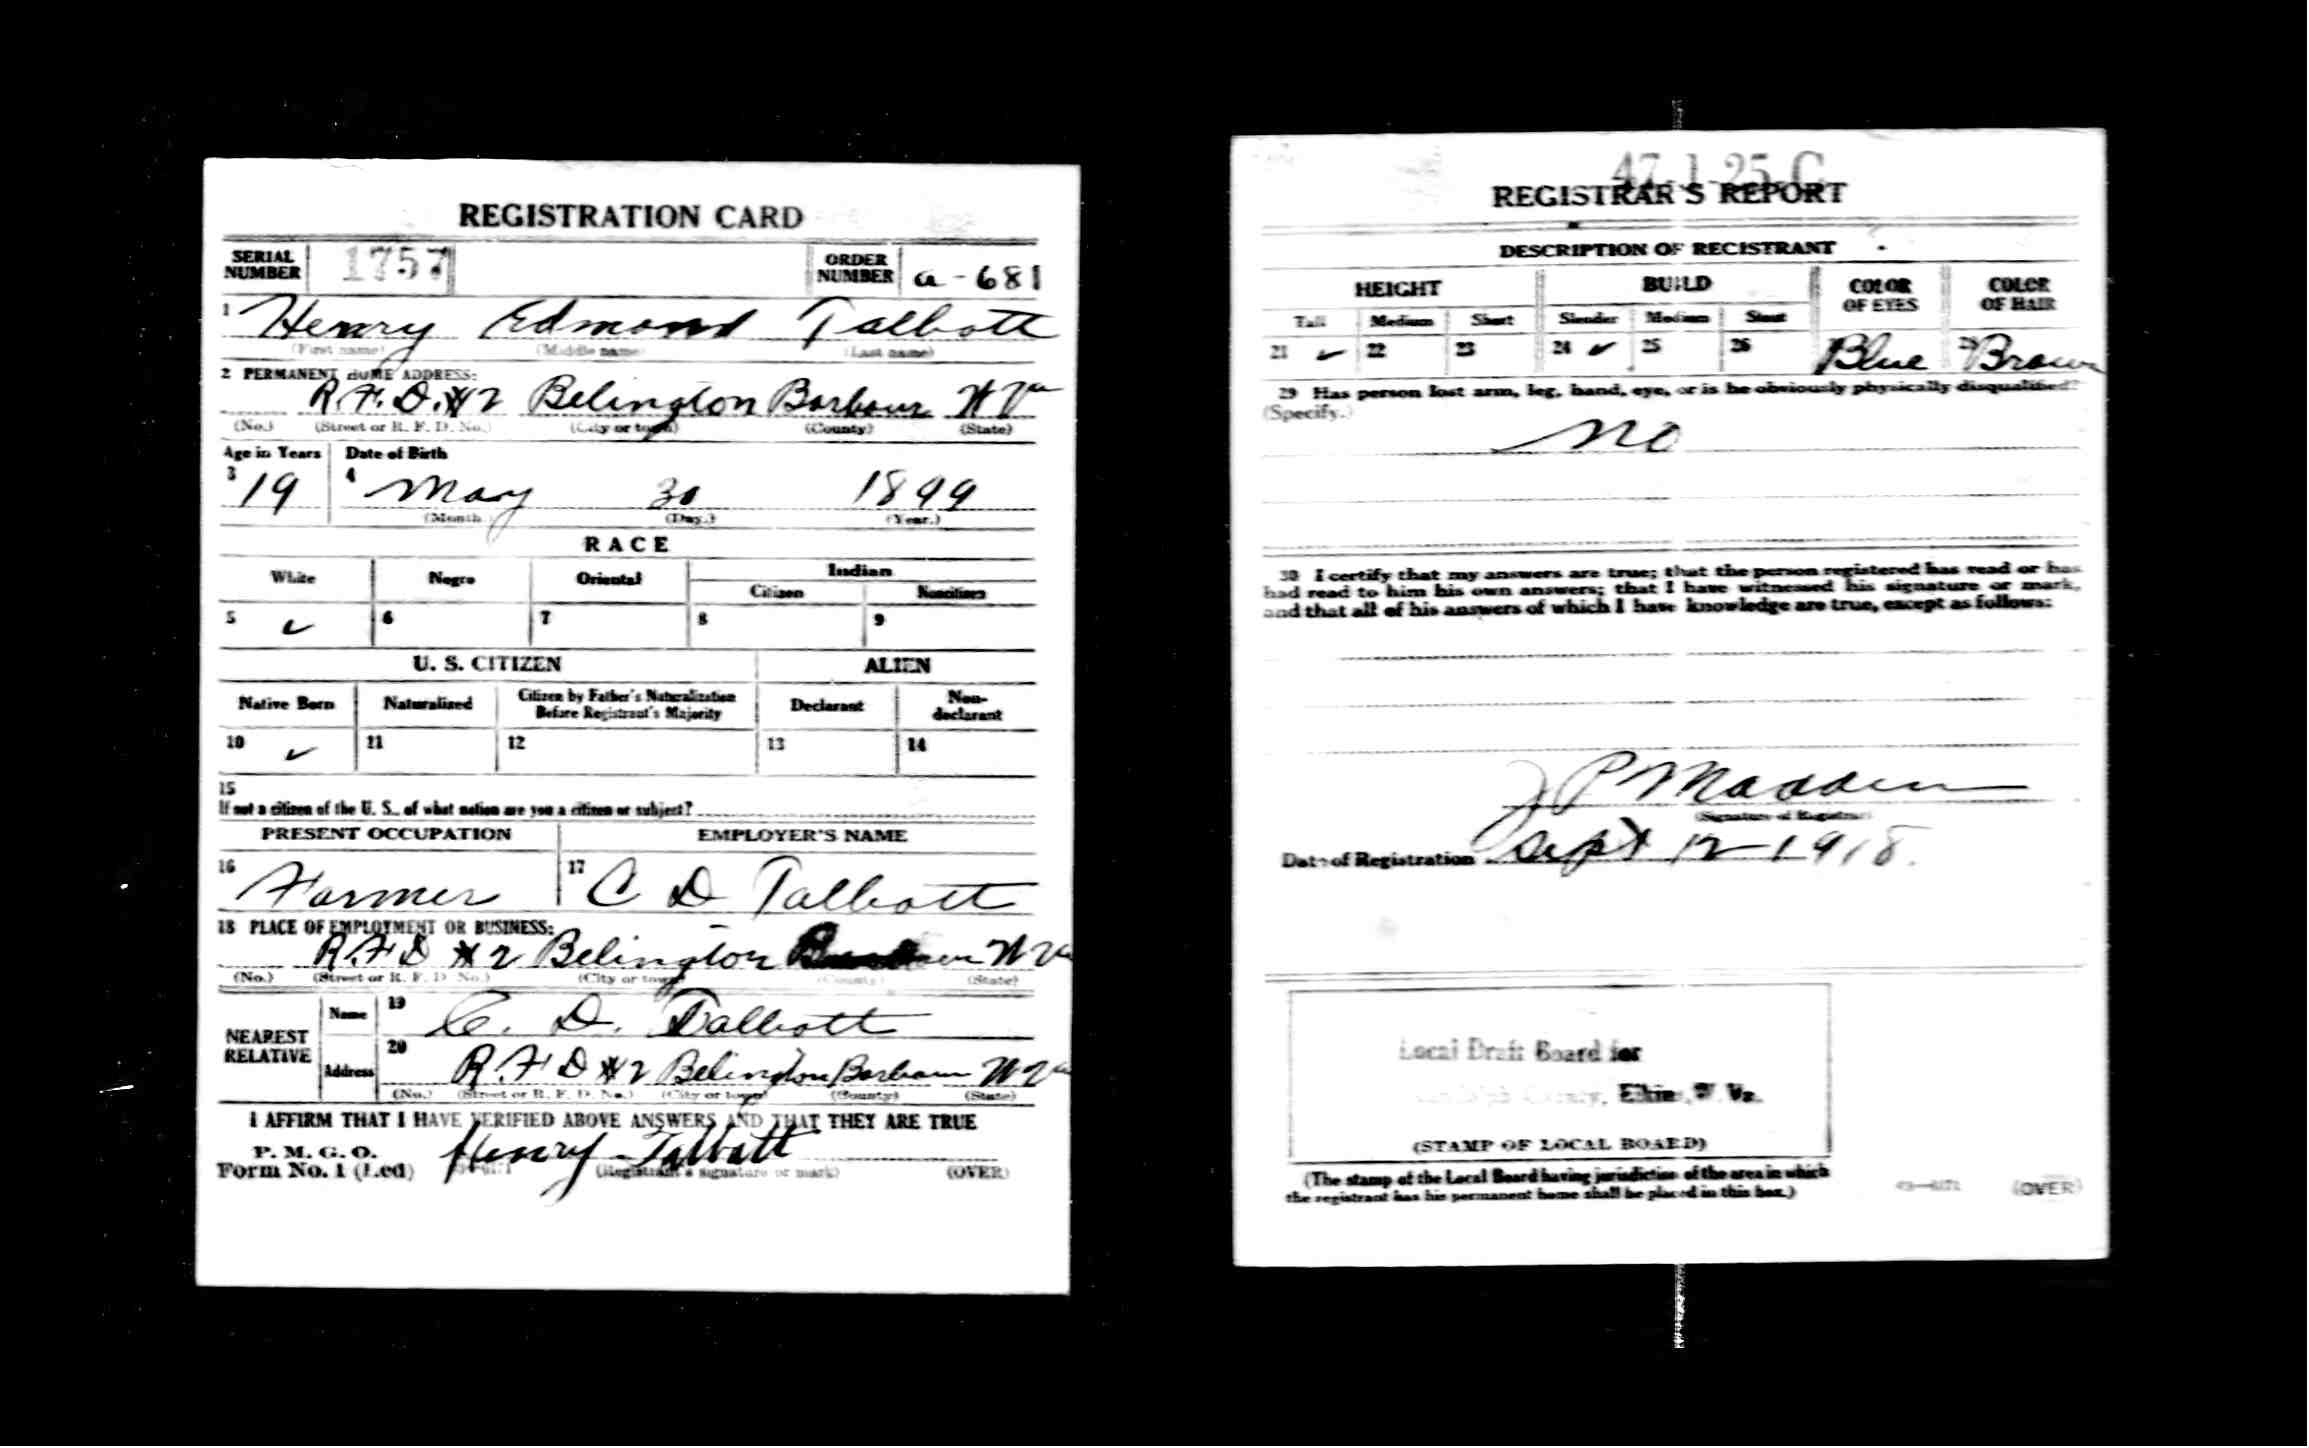 REGISTRATION CARD
SERIAL NUMBER 1757 ORDER NUMBER a-681
1 Henry Edmond Talbott
(First name) (Middle name) (Last name)
2 PERMANENT HOME ADDRESS:
R.F.D. #2 Belington Barbour W Va
(No.) (Street or R. F. D. No.) (City or town) (County) (State)
Age in Years Date of Birth
3 19 4 May 30 1899
(Month.) (Day.) (Year.)
RACE
White Negro Oriental Indian
Citizen Noncitizen
5 ✓ 6 7 8 9
U. S. CITIZEN ALIEN
Native Born Naturalized Citizen by Father's Naturalization Before Registrant's Majority Declarant Non-declarant
10 ✓ 11 12 13 14
15
If not a citizen of the U. S., of what nation are you a citizen or subject?
PRESENT OCCUPATION EMPLOYER'S NAME
16 Farmer 17 C D Talbott
18 PLACE OF EMPLOYMENT OR BUSINESS:
R.F.D #2 Belington W Va
(No.) (Street or R. F. D. No.) (City or town) (County) (State)
NEAREST RELATIVE
Name 19 C. D. Talbott
Address 20 R F D #2 Belington Barbour W Va
(No.) (Street or R. F. D. No.) (City or town) (County) (State)
I AFFIRM THAT I HAVE VERIFIED ABOVE ANSWERS AND THAT THEY ARE TRUE
P. M. G. O.
Form No. 1 (Led) Henry Talbott
(Registrant's signature or mark) (OVER)
47-1-25-C
REGISTRAR'S REPORT
DESCRIPTION OF REGISTRANT
HEIGHT BUILD COLOR OF EYES COLOR OF HAIR
Tall Medium Short Slender Medium Stout
21 ✓ 22 23 24 ✓ 25 26 Blue 28 Brown
29 Has person lost arm, leg, hand, eye, or is he obviously physically disqualified?
(Specify.)
no
30 I certify that my answers are true; that the person registered has read or has
had read to him his own answers; that I have witnessed his signature or mark,
and that all of his answers of which I have knowledge are true, except as follows:
J P Madden
(Signature of Registrar)
Date of Registration Sept 12 - 1918.
Local Draft Board for
County, Elkins, W. Va.
(STAMP OF LOCAL BOARD)
(The stamp of the Local Board having jurisdiction of the area in which
the registrant has his permanent home shall be placed in this box.)
(OVER)